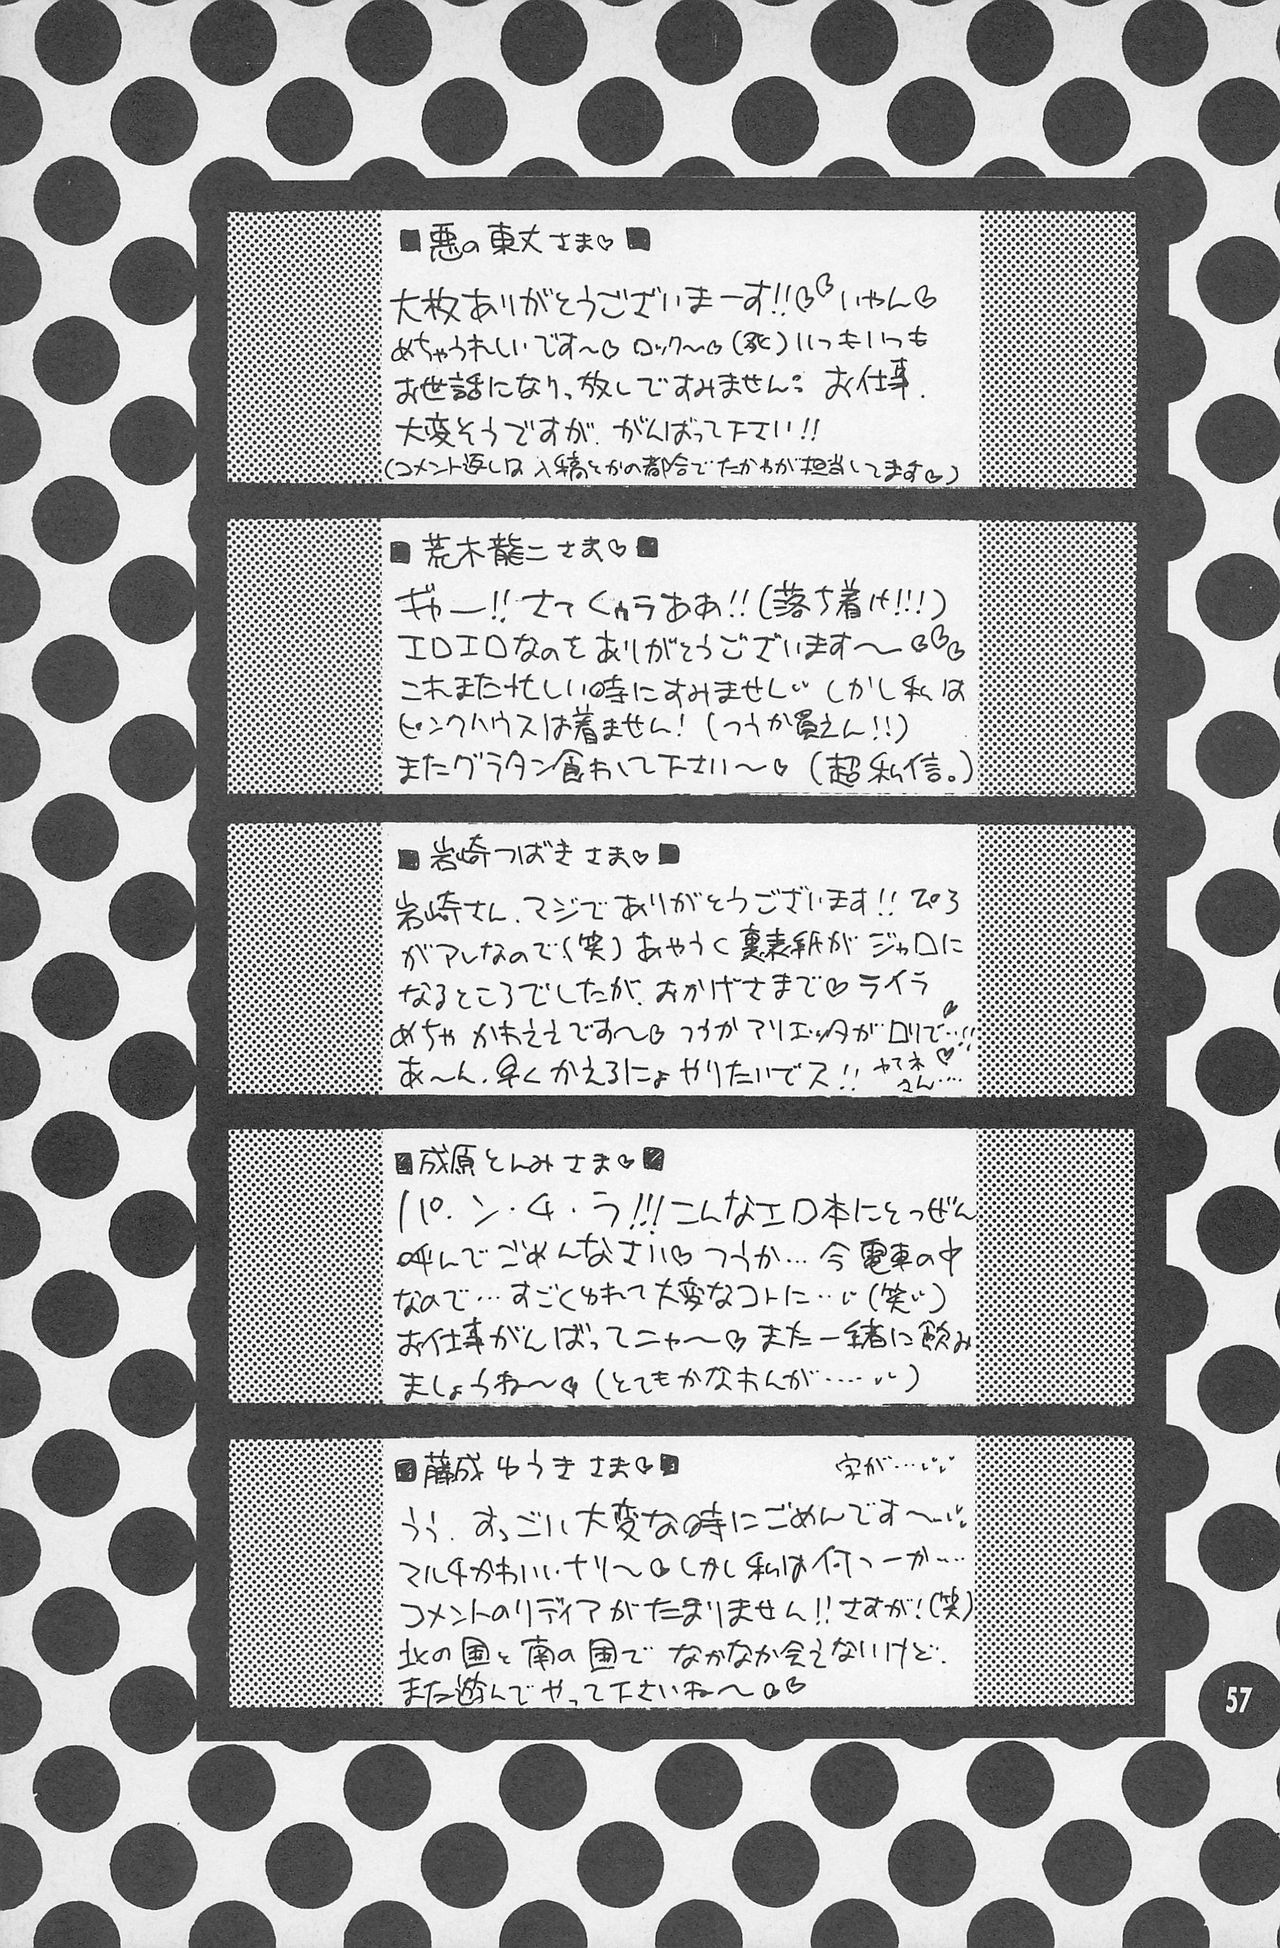 ■悪の東丈さま♡■
大枚ありがとうございまーす!!♡♡いやん♡
めちゃうれしいです〜♡ロック〜♡(死)いつもいつも
お世話になりっ放しですみません お仕事
大変そうですが、がんばって下さい!!
(コメント返しは入稿とかの都合でたかやが担当してます♡)
■荒木龍二さま♡■
ギャー!!さてくぅうああ!!(落ち着け!!!)
エロエロなのをありがとうございます〜♡♡♡
これまた忙しい時にすみません しかし私は
ピンクハウスは着ません!(つうか買えん!!)
またグラタン食わして下さい〜♡(超私信。)
■岩崎つばきさま♡■
岩崎さん、マジでありがとうございます!!ぴろ
がアレなので(笑)あやうく裏表紙がジャロに
なるところでしたが、おかげさまで♡ライラ
めちゃかわええです〜♡つうかマリエッタがロリで…!!
あ〜ん、早くかえるにょやりたいでス!!やてネ♡
さん….
■成原とんみさま♡■
パ・ン・チ・ラ!!!こんなエロ本にとつぜん
呼んでごめんなさい♡つうか…今電車の中
なので…すごくゆれて大変なコトに…(笑)
お仕事がんばってニャ〜♡また一緒に飲み
ましょうね〜♡(とてもかなわんが…..)
■藤成ゆうきさま♡■ 字が…
うう、すっごい大変な時にごめんです〜
マルチかわいいナリ〜♡しかし私は何つーか…
コメントのリディアがたまりません!!さすが!(笑)
北の国と南の国でなかなか会えないけど、
また遊んでやって下さいね〜♡♡
57